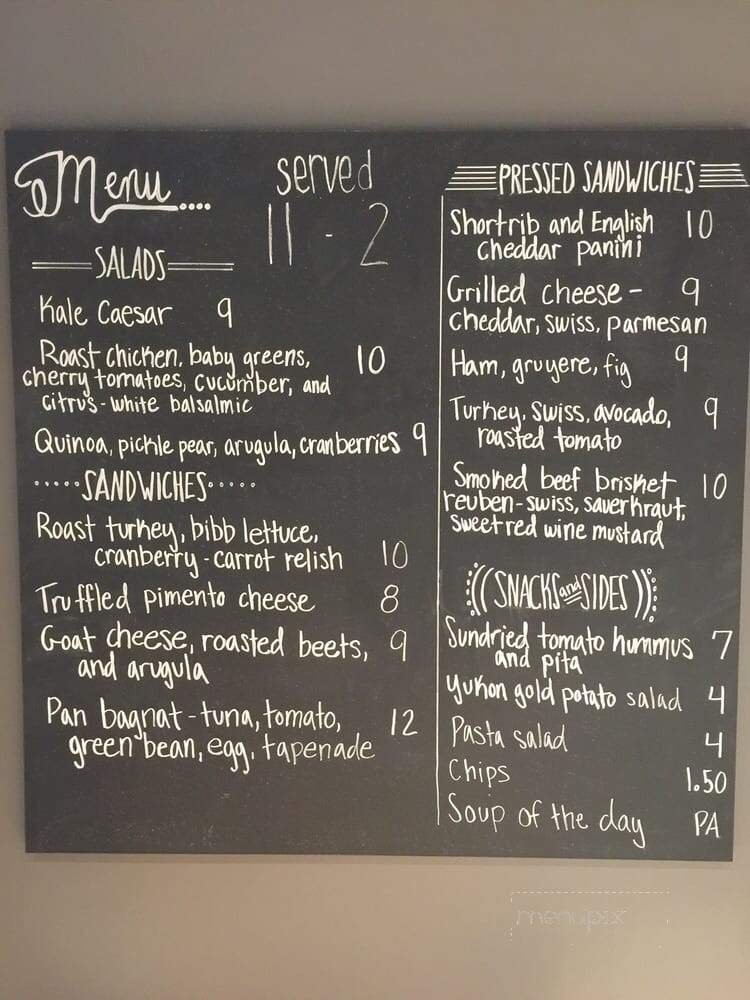 Menu....
served
11 - 2
SALADS
Kale Caesar 9
Roast chicken, baby greens, 10
cherry tomatoes, cucumber, and
citrus - white balsalmic
Quinoa, pickle pear, arugula, cranberries 9
.....SANDWICHES.....
Roast turkey, bibb lettuce,
cranberry - carrot relish 10
Truffled pimento cheese 8
Goat cheese, roasted beets, 9
and arugula
Pan bagnat - tuna, tomato, 12
green bean, egg, tapenade
PRESSED SANDWICHES
Shortrib and English 10
cheddar panini
Grilled cheese - 9
cheddar, swiss, parmesan
Ham, gruyere, fig 9
Turkey, swiss, avocado, 9
roasted tomato
Smoked beef brisket 10
reuben - swiss, sauerkraut,
sweet red wine mustard
SNACKS and SIDES
Sundried tomato hummus 7
and pita
Yukon gold potato salad 4
Pasta salad 4
Chips 1.50
Soup of the day PA
menupix